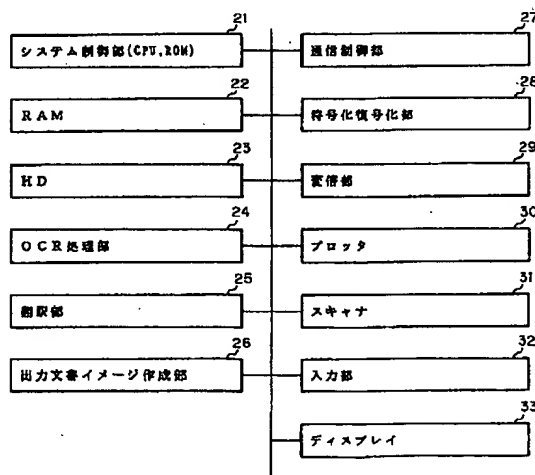 21
システム制御部(CPU,ROM)
22
RAM
23
HD
24
OCR処理部
25
翻訳部
26
出力文書イメージ作成部
27
通信制御部
28
符号化復号化部
29
変倍部
30
プロッタ
31
スキャナ
32
入力部
33
ディスプレイ